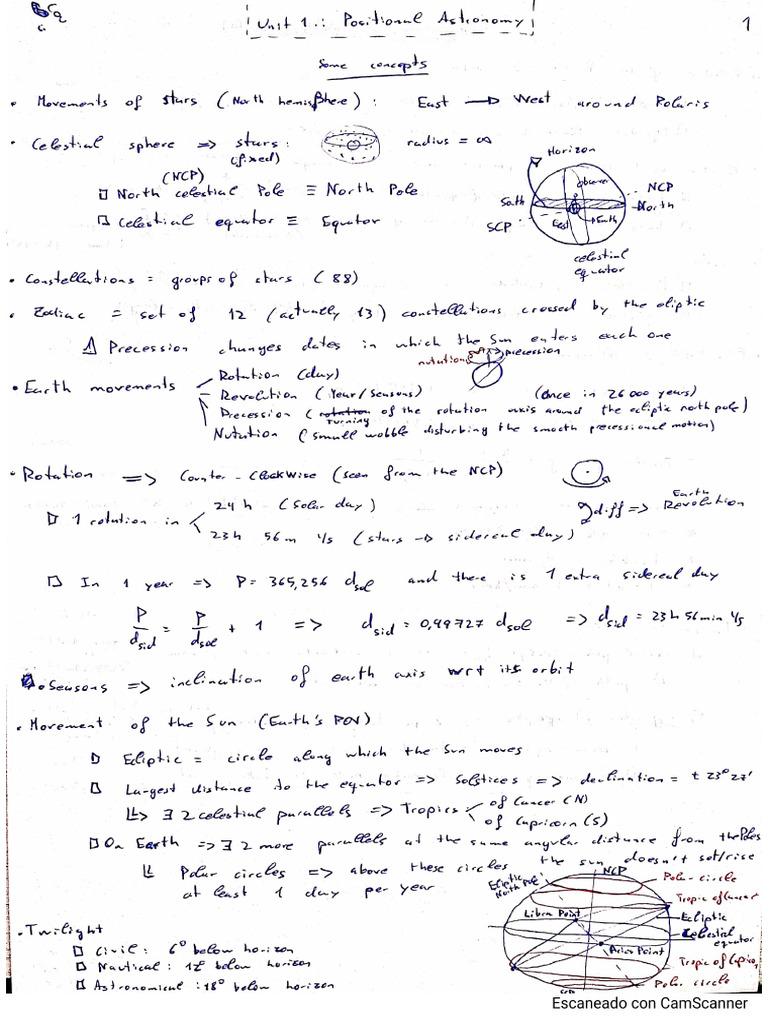 Unit 1.: Positional Astronomy
1
Some concepts
• Movements of stars (North hemisphere): East → West around Polaris
• Celestial sphere => stars: (fixed) radius = ∞
(NCP)
□ North celestial Pole ≡ North Pole
□ Celestial equator ≡ Equator
Horizon
observer
NCP
South
North
SCP
East
Earth
celestial
equator
• Constellations = groups of stars (88)
• Zodiac = set of 12 (actually 13) constellations crossed by the eliptic
⚠ Precession changes dates in which the Sun enters each one
nutation
precession
• Earth movements
Rotation (day)
Revolution (Year/Seasons) (Once in 26000 years)
Precession (rotation turning of the rotation axis around the ecliptic north pole)
Nutation (small wobble disturbing the smooth precessional motion)
• Rotation => Counter-Clockwise (seen from the NCP)
□ 1 rotation in
24h (Solar day)
23h 56m 4s (stars → sidereal day)
diff => Earth Revolution
□ In 1 year => P = 365,256 dsol and there is 1 extra sidereal day
P/dsid = P/dsol + 1 => dsid = 0,99727 dsol => dsid = 23h 56min 4s
• Seasons => inclination of earth axis wrt its orbit
• Movement of the Sun (Earth's POV)
□ Ecliptic = circle along which the Sun moves
□ Largest distance to the equator => Solstices => declination = ± 23° 27'
↳> ∃ 2 celestial parallels => Tropics of Cancer (N)
of Capricorn (S)
□ On Earth => ∃ 2 more parallels at the same angular distance from the Poles
↳ Polar circles => above these circles the sun doesn't set/rise
at least 1 day per year
• Twilight
□ Civil: 6° below horizon
□ Nautical: 12° below horizon
□ Astronomical: 18° below horizon
Ecliptic
North Pole
NCP
Polar circle
Tropic of Cancer
Libra Point
Ecliptic
Celestial
equator
Aries Point
Tropic of Capricor
Polar circle
Escaneado con CamScanner